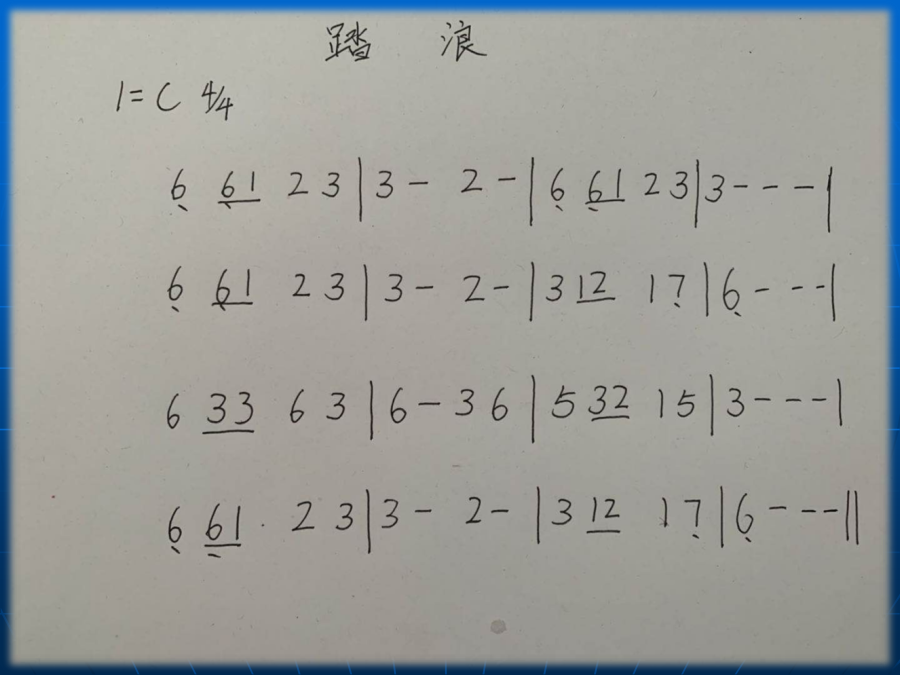 踏 浪
1=C 4/4
6̣ 6̣1 2 3 | 3 - 2 - | 6̣ 6̣1 2 3 | 3 - - - |
6̣ 6̣1 2 3 | 3 - 2 - | 3 12 1 7̣ | 6̣ - - - |
6 33 6 3 | 6 - 3 6 | 5 32 1 5 | 3 - - - |
6̣ 6̣1 · 2 3 | 3 - 2 - | 3 12 1 7̣ | 6̣ - - - ||